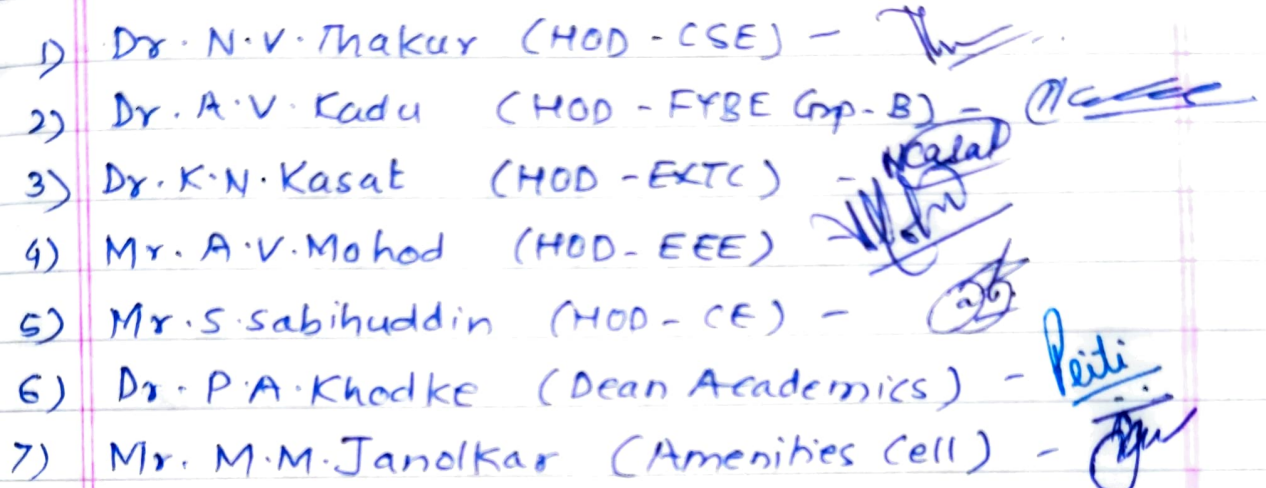 1) Dr. N.V. Thakur (HOD - CSE) -
2) Dr. A.V. Kadu (HOD - FYBE Grp-B) -
3) Dr. K.N. Kasat (HOD - EXTC) - NCasat
4) Mr. A.V. Mohod (HOD - EEE)
5) Mr. S. Sabihuddin (HOD - CE) -
6) Dr. P.A. Khodke (Dean Academics) - Peiti
7) Mr. M.M. Janolkar (Amenities Cell) -